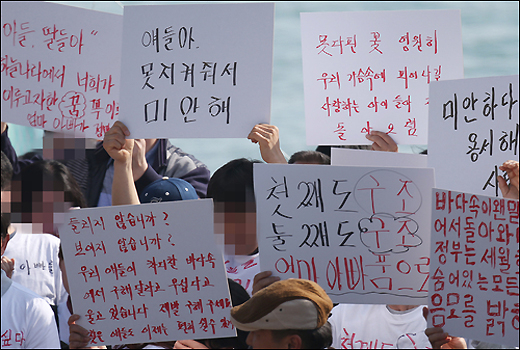 이들, 딸들아"
하늘나라에서 너희가
이루고자한 꿈 꼭 이
엄마 아빠가
얘들아.
못지켜줘서
미안해
못다핀 꽃 영원히
우리 가슴속에 피어나길
사랑하는 아이들아
들아 오렴
미안하다
용서해
들리지 않습니까?
보이지 않습니까?
우리 애들이 차디찬 바다속
에서 구해달라고 우리고
울고 있습니다. 제발 구해주세요
것을 애들도 이제는
첫 2째도 구조
둘 2째도 구조
엄마 아빠 품으로
바다속이 왠말
어서 돌아와
정부는 세월
숨어있는 모든
음모를 밝혀